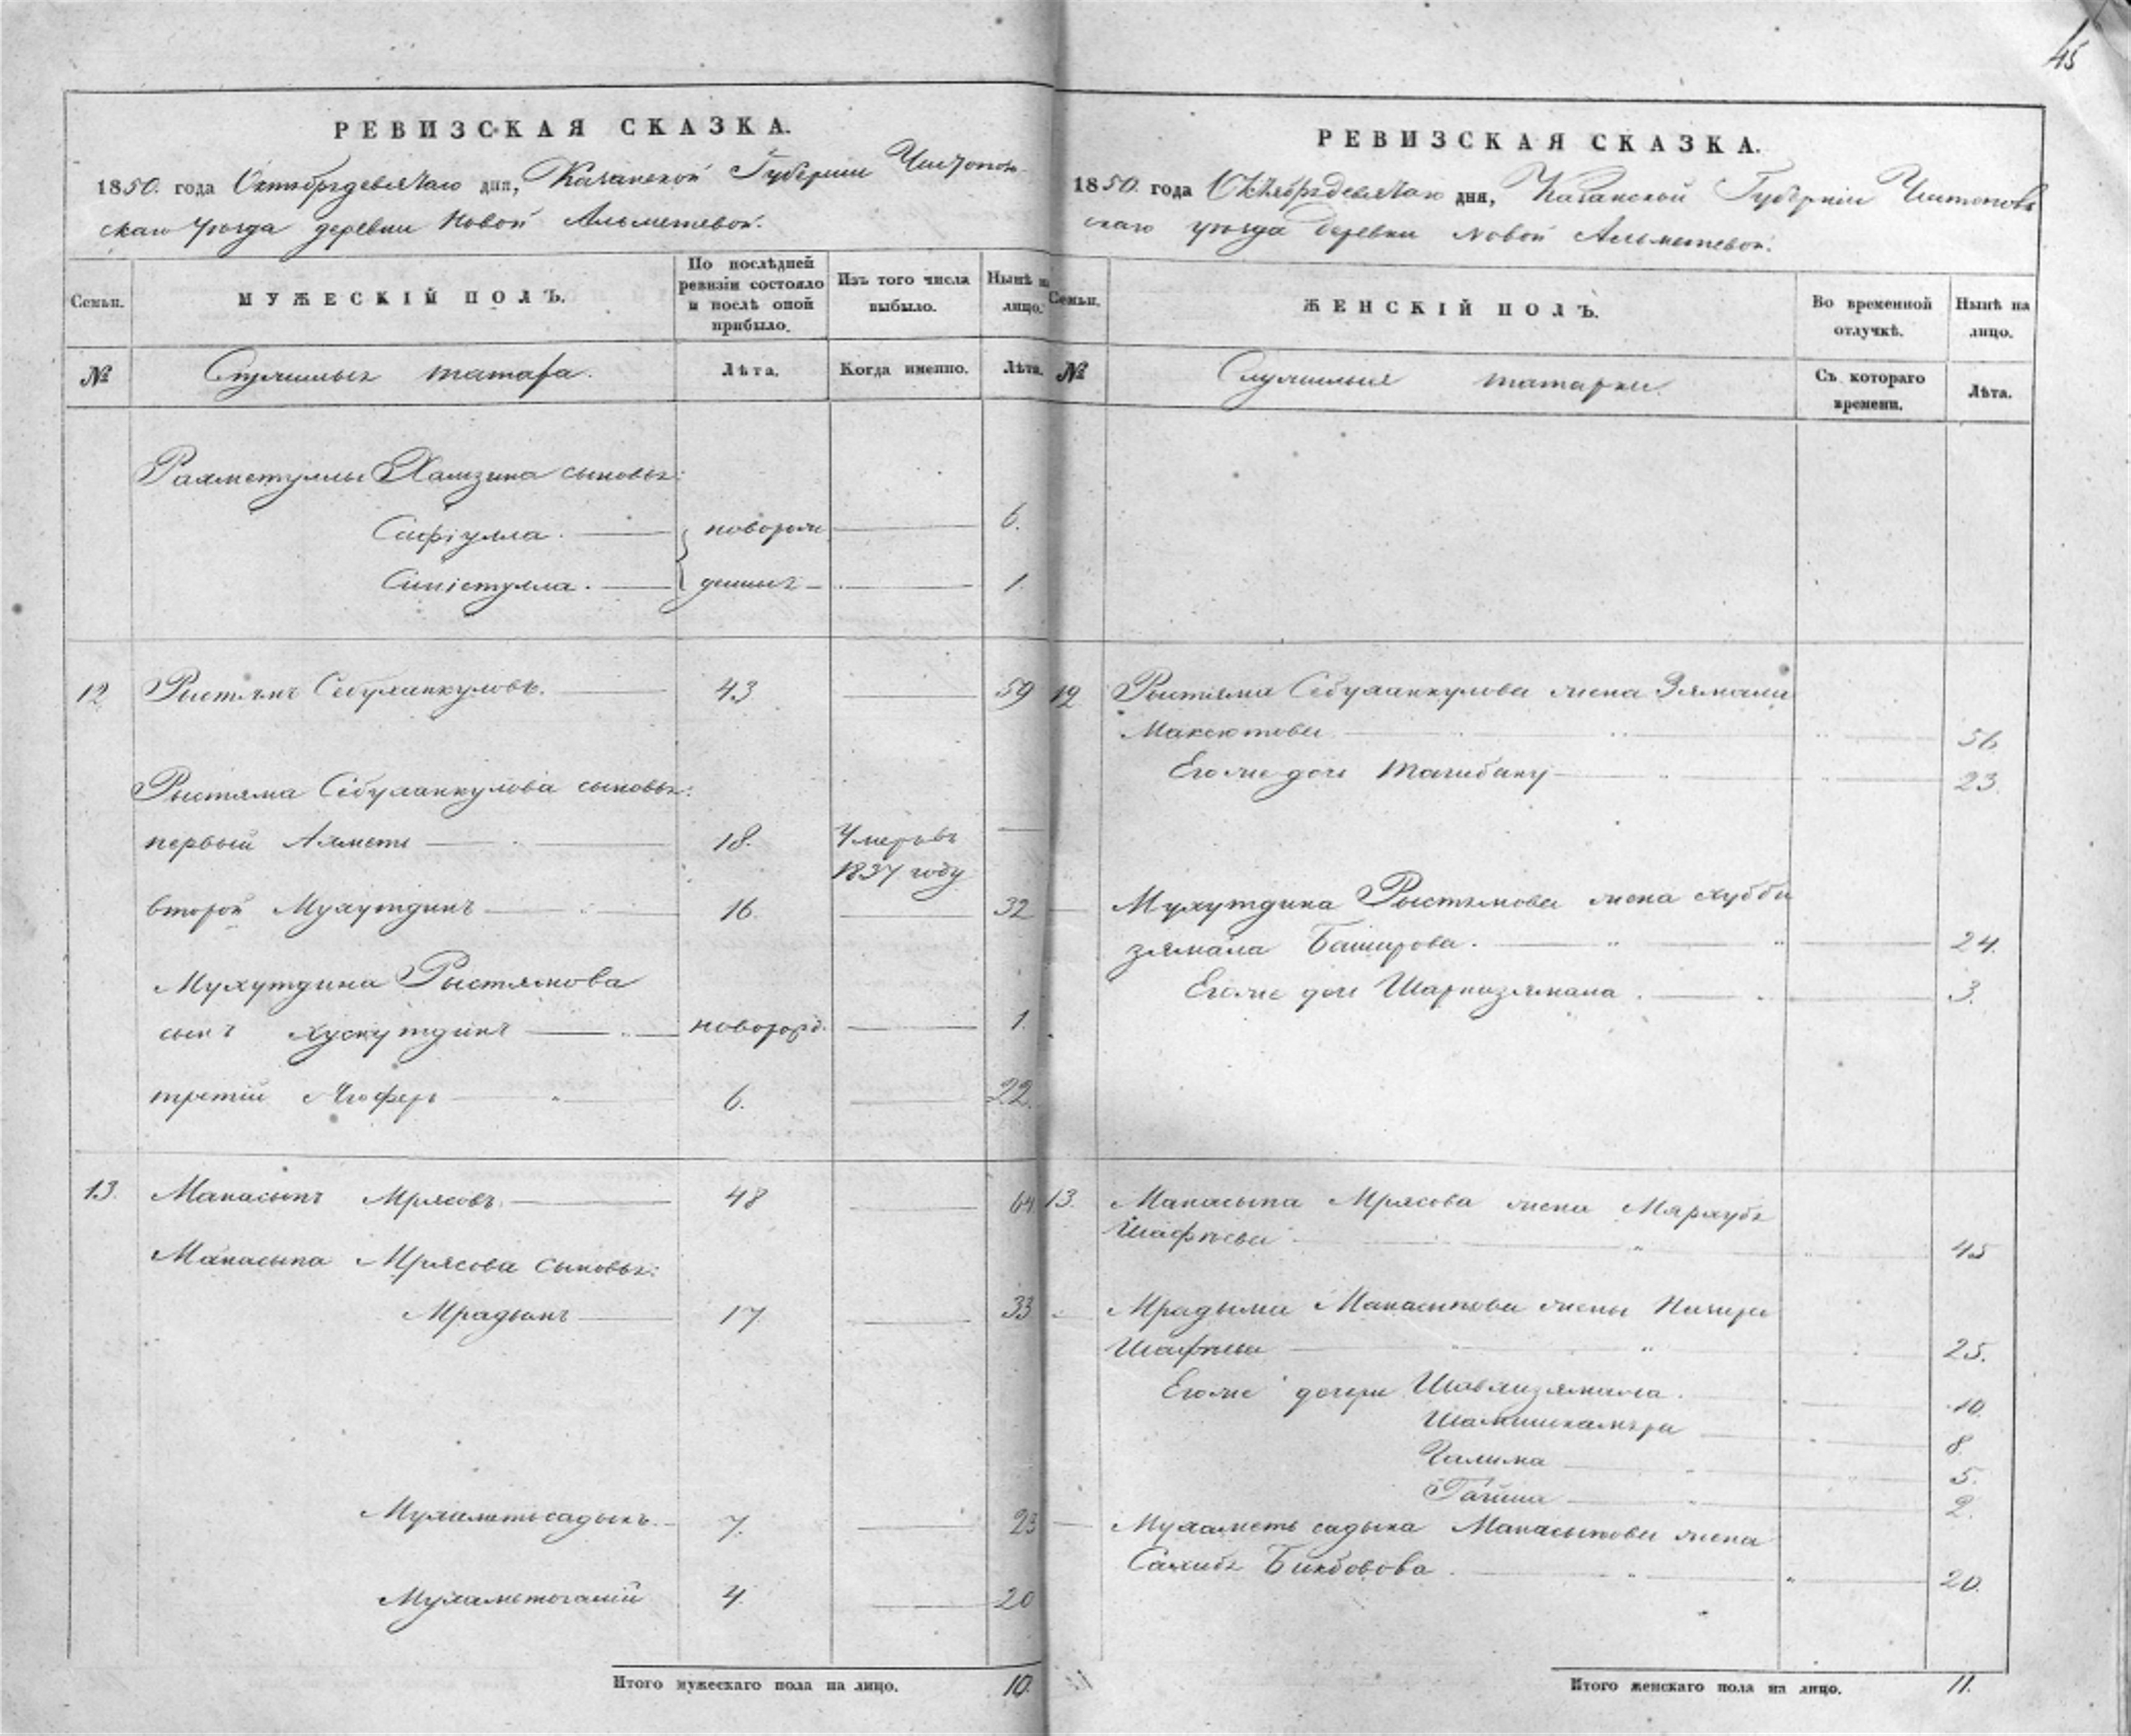 45
РЕВИЗСКАЯ СКАЗКА.
1850. года Октября девятаго дня, Казанской Губерніи Чистополь-
скаго уѣзда деревни Новой Альметевой.
Семьи.
МУЖЕСКІЙ ПОЛЪ.
По послѣдней ревизіи состояло и послѣ оной прибыло.
Изъ того числа выбыло.
Нынѣ на лицо.
№
Служилыхъ татаръ.
Лѣта.
Когда именно.
Лѣта.
Рахметуллы Хамзина сыновья:
Сафіулла. новорож 6.
денные 1.
12 Рыстямъ Себуханкуловъ. 43 59
Рыстяма Себуханкулова сыновья:
первый Ахметь 18. Умеръ въ
1837 году
второй Мухутдинъ 16. 32
Мухутдина Рыстямова
сынъ Хуснутдинъ новорожд. 1.
третій 6. 22.
13. Манасыпъ Мрясовъ. 48 64
Манасыпа Мрясова сыновья:
Мрадымъ 17 33
Мухаметьсадыкъ. 7. 23
Мухаметгалій 4. 20
Итого мужескаго пола на лицо. 10.
РЕВИЗСКАЯ СКАЗКА.
1850. года Октября девятаго дня, Казанской Губерніи Чистополь
скаго уѣзда деревни Новой Альметевой.
Семьи.
ЖЕНСКІЙ ПОЛЪ.
Во временной отлучкѣ.
Нынѣ на лицо.
№
Служилыя татарки.
Съ котораго времени.
Лѣта.
12 Рыстяма Себуханкулова жена Зямали
Максютова 56
Его же дочь Тагибану 23.
Мухутдина Рыстямова жена Хубби
зямала Баширова. 24.
Его же дочь Шарпизямала. 3.
13. Манасыпа Мрясова жена Мярхуба
Шафѣева 45
Мрадыма Манасыпова жены
Шафѣева 25.
Его же дочери 10.
Шамшикамъра 8.
Галима 5.
2.
Мухаметь садыка Манасыпова жена
Сахиба Бикбовова. 20.
Итого женскаго пола на лицо. 11.